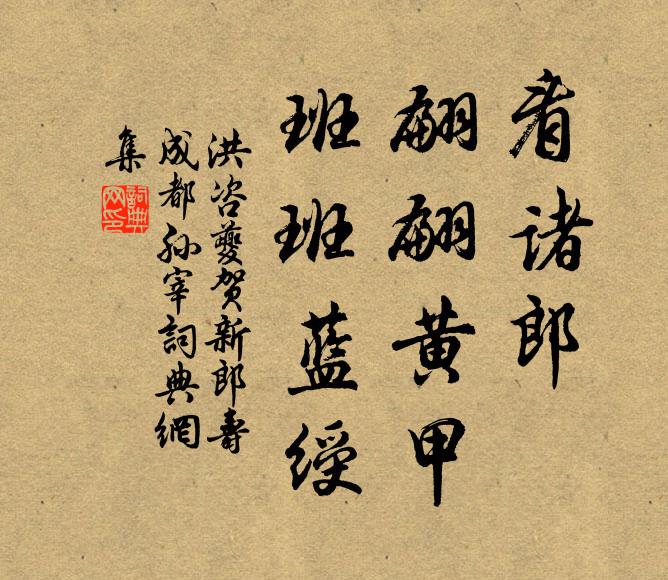 看诸郎
翩翩黄甲
班班蓝绶
洪咨夔贺新郎寿
成都孙宰词典網
集
詞典网印